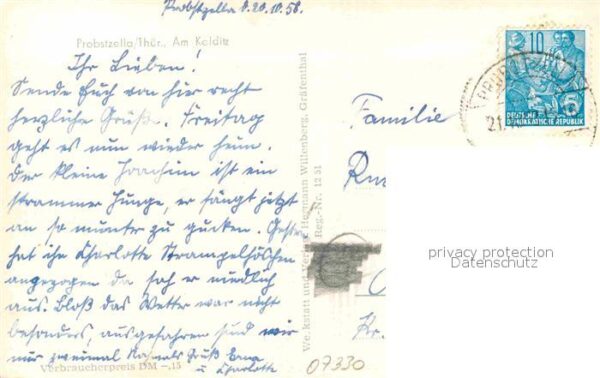 Probstzella d. 20.10.58.
Probstzella/Thür., Am Kolditz
Ihr Lieben!
Sende Euch von hier recht
herzliche Grüße. Freitag
geht es nun wieder heim.
Der kleine Joachim ist ein
strammer Junge, er fängt jetzt
an so munter zu gucken. Gestern
hat ihn Charlotte Strampelhöschen
angezogen da sah er niedlich
aus. Bloß das Wetter war nicht
besonders, ausgefahren sind wir
nur zweimal Nochmals Gruß
u. Charlotte
Verbraucherpreis DM -,15
Werkstatt und Verlag Hermann Wittenberg, Gräfenthal
Reg.-Nr. 12 51
Familie
10
5
DEUTSCHE
DEMOKRATISCHE REPUBLIK
21.
privacy protection
Datenschutz
07330